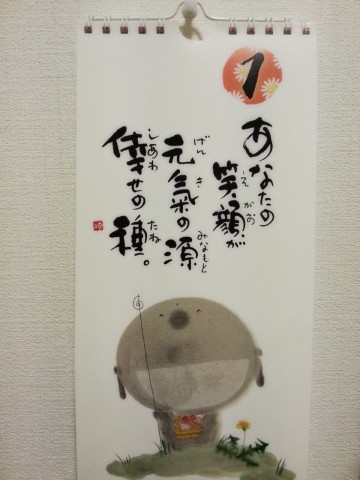 1
あなたの
笑顔が
えがお
元氣の源
げんきみなもと
倖せの種。
しあわたね